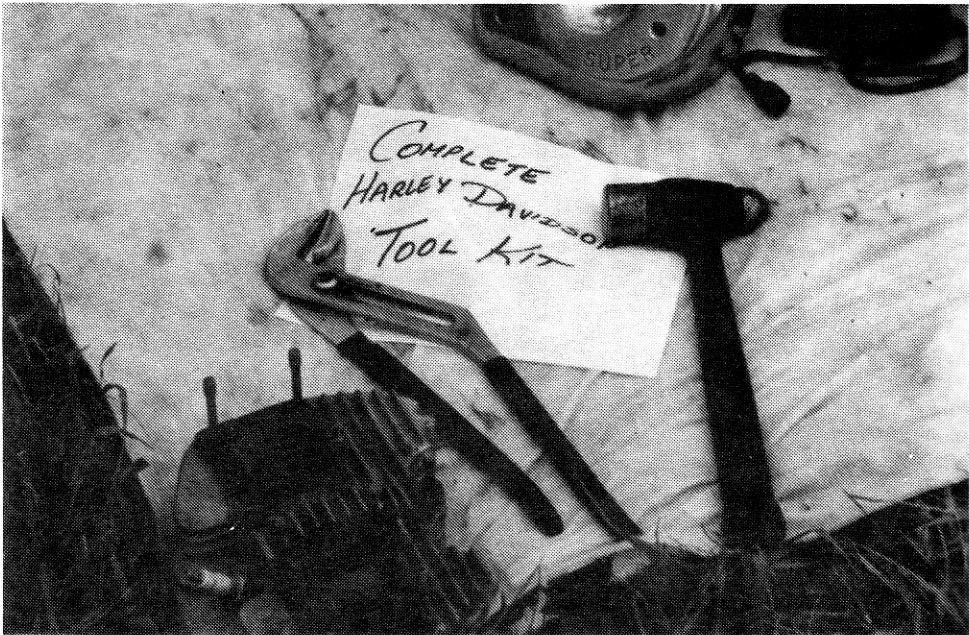 SUPER
COMPLETE
HARLEY DAVIDSON
TOOL KIT